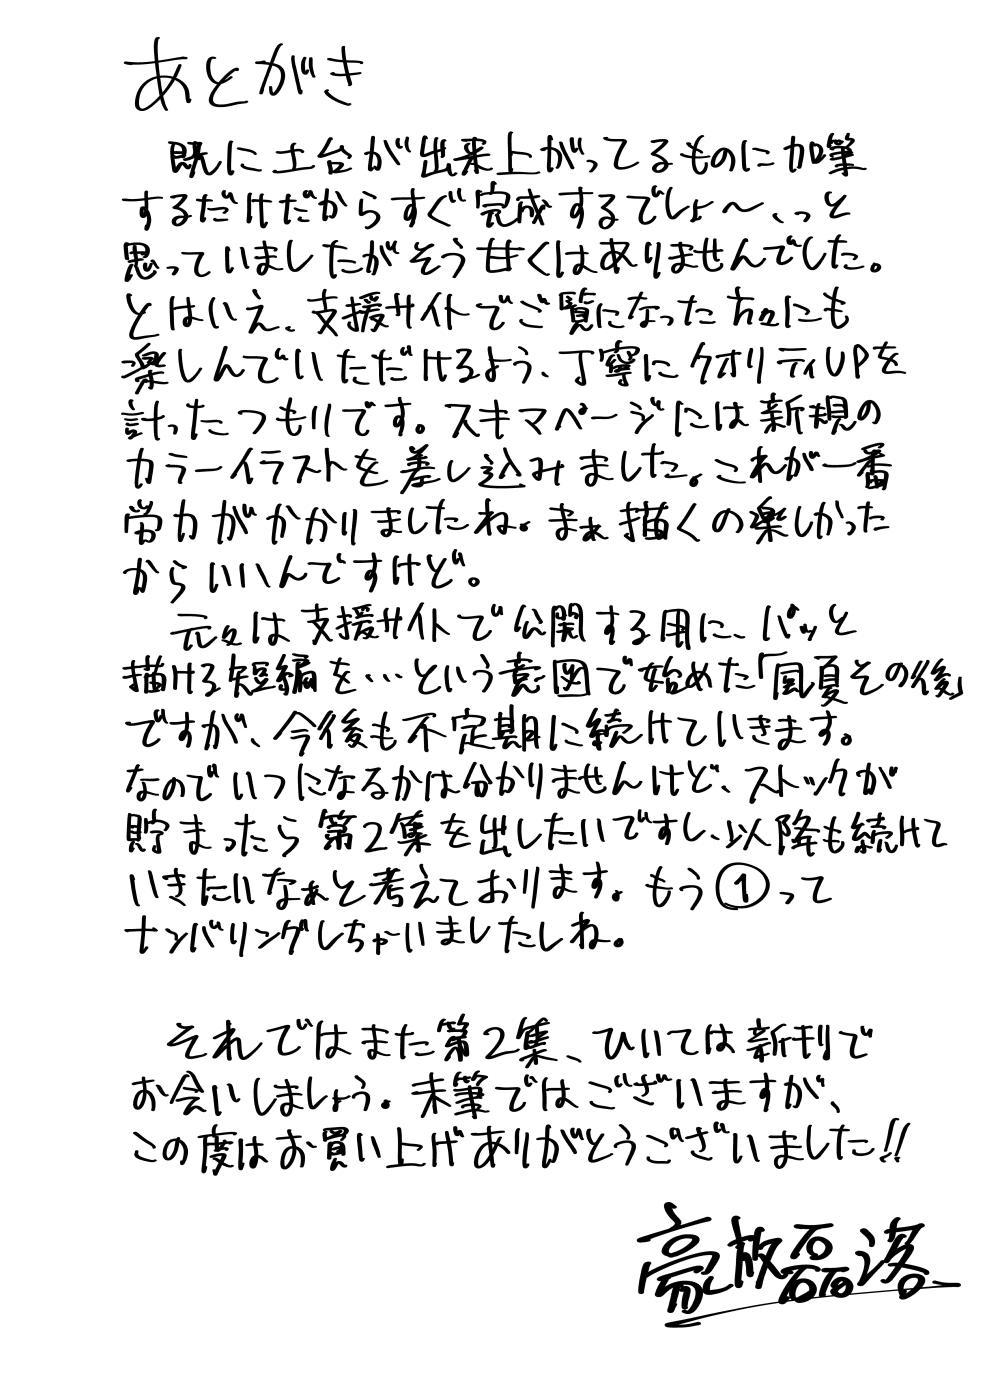 あとがき
既に土台が出来上がってるものに加筆
するだけだからすぐ完成するでしょ〜、っと
思っていましたがそう甘くはありませんでした。
とはいえ、支援サイトでご覧になった方々にも
楽しんでいただけるよう、丁寧にクオリティUPを
計ったつもりです。スキマページには新規の
カラーイラストを差し込みました。これが一番
労力がかかりましたね。まぁ描くの楽しかった
からいいんですけど。
元々は支援サイトで公開する用に、パッと
描ける短編を…という意図で始めた「風夏その後」
ですが、今後も不定期に続けていきます。
なのでいつになるかは分かりませんけど、ストックが
貯まったら第2集を出したいですし、以降も続けて
いきたいなぁと考えております。もう①って
ナンバリングしちゃいましたしね。
それではまた第2集、ひいては新刊で
お会いしましょう。末筆ではございますが、
この度はお買い上げありがとうございました!!
豪放磊落